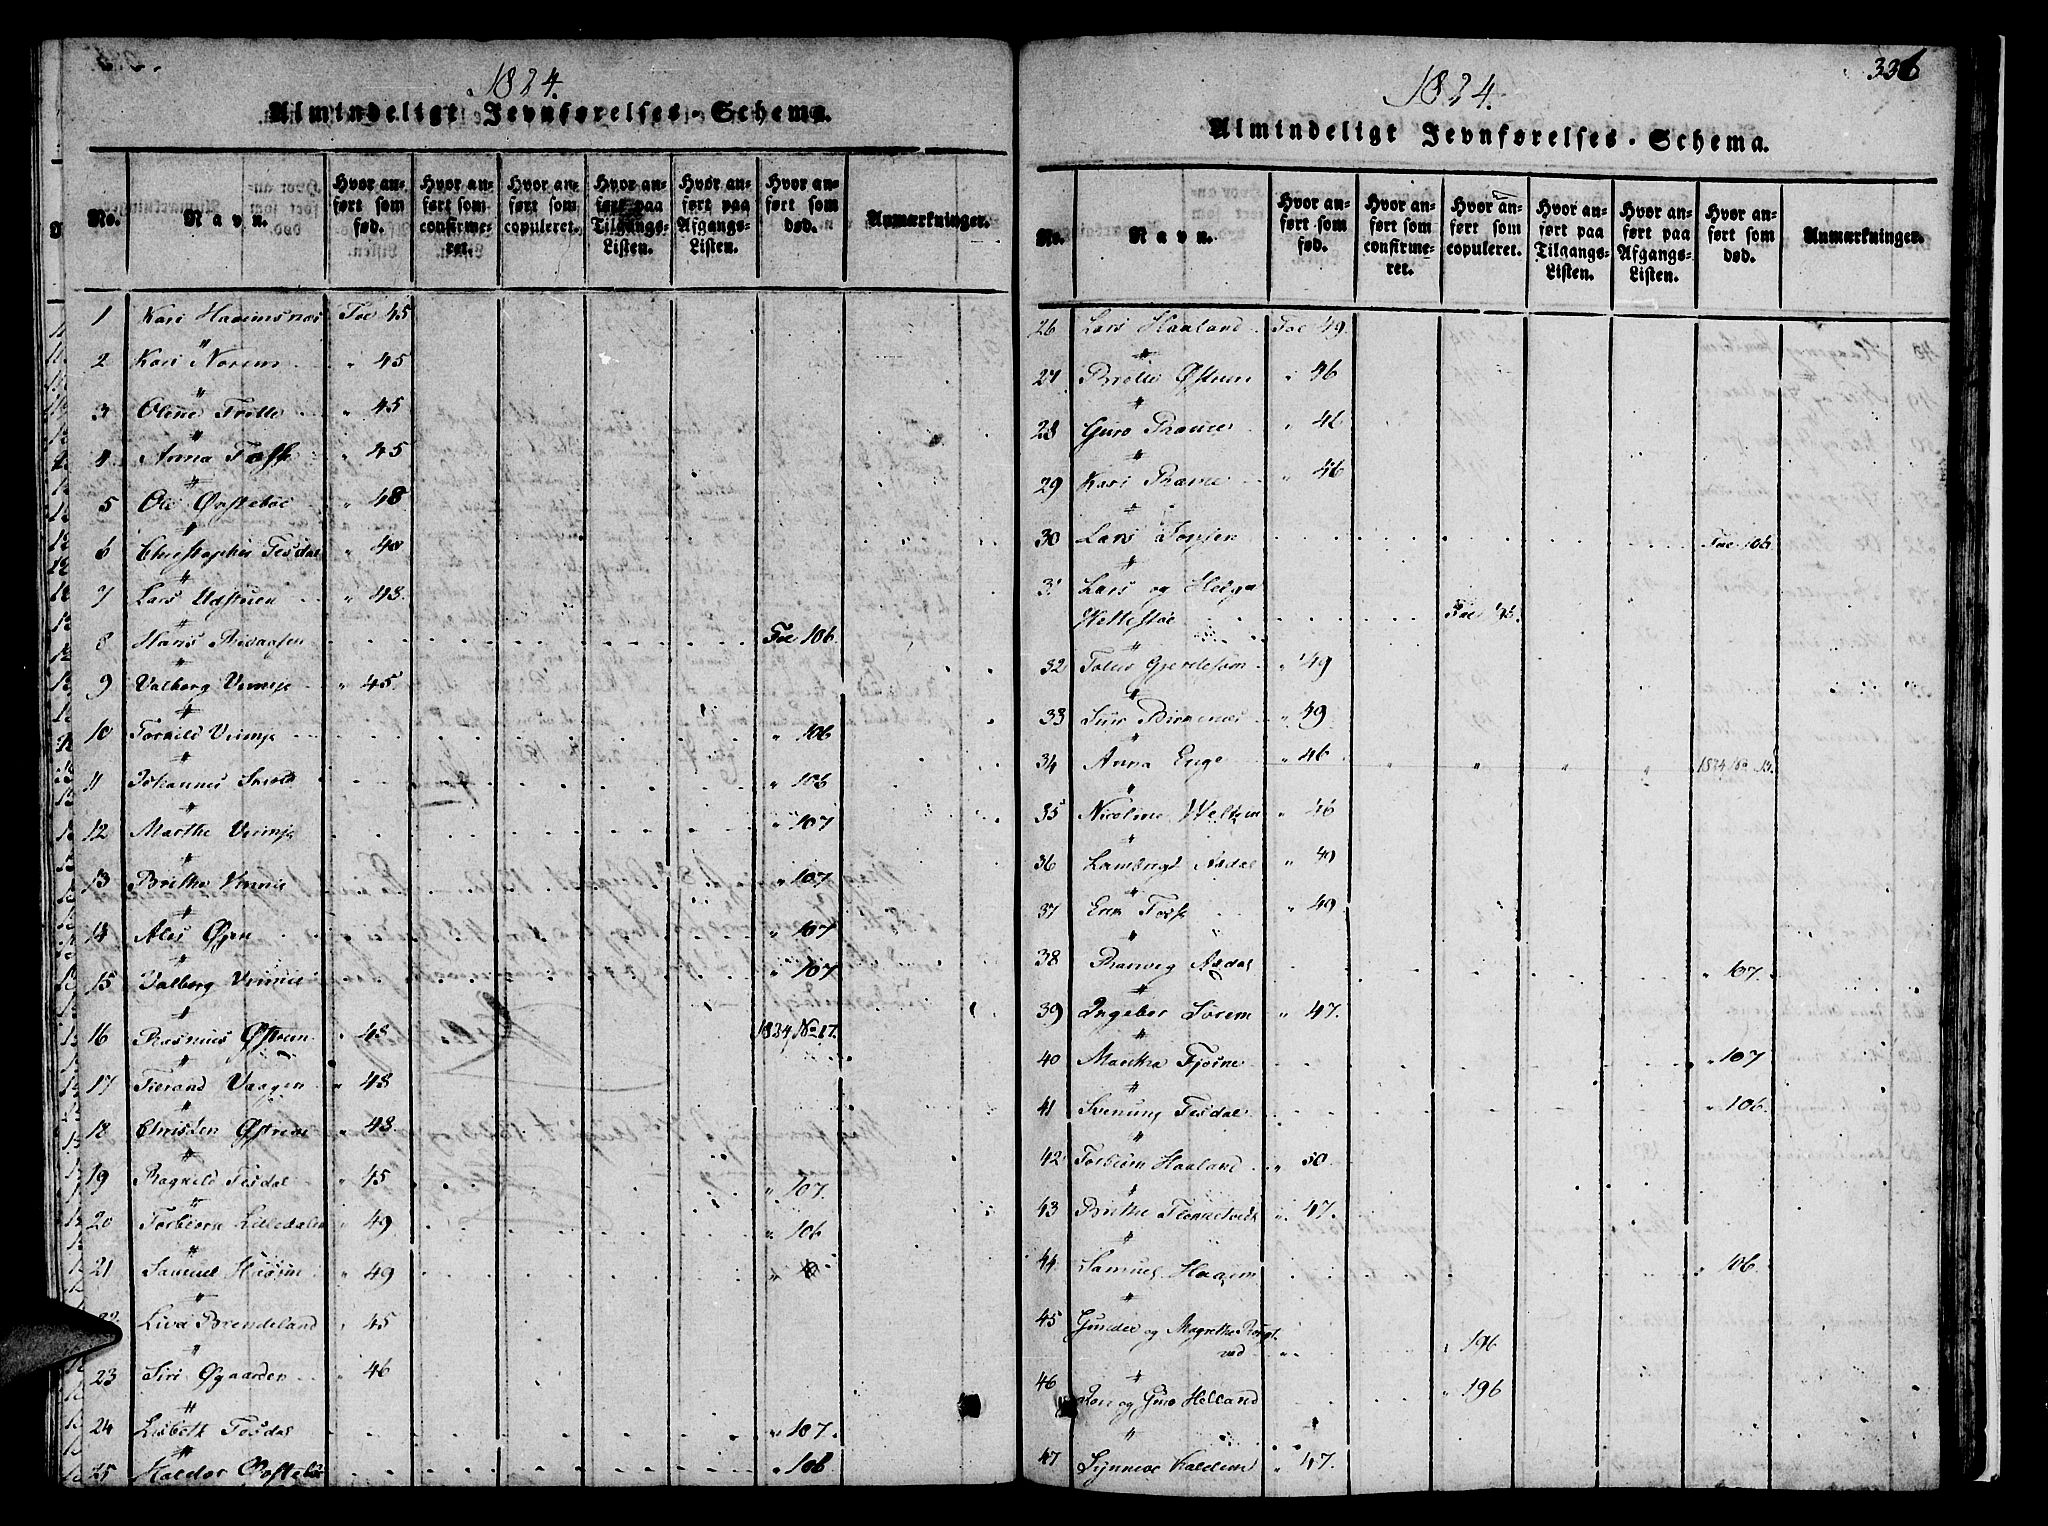 1824.
Almindeligt Jevnførelses-Schema.
No. Navn. Hvor anført som fød. Hvor anført som confirmeret. Hvor anført som copuleret. Hvor anført paa Tilgangs-Listen. Hvor anført paa Afgangs-Listen. Hvor anført som død. Anmærkninger.
1 Kari Haaimsnæs Foe 45
2 Kari Norem " 45
3 Oline Trotte " 45
4 Anna Foss " 45
5 Ole Østeboe " 48
6 Christopher Tesdal " 48
7 Lars Udstuen " 48.
8 Hans Foe 106.
9 Valborg Vrimje " 45.
10 Torkild Vrimje " 106
11 Johannes " 106
12 Marthe Vrimje " 107
13 Brithe Vrimje " 107
14 Ales Øyen " 107
15 Valborg Vrimje " 107
16 Rasmus Østrem " 48 1824 No 17.
17 Tierand Vaagen " 48
18 Christen Østrem " 48.
19 Ragnild Tesdal " 45 " 107.
20 Torbiorn Lilledalen " 49 " 106
21 Samuel Haaim " 49
22 Liva Brendeland " 45
23 Siri Øgaarden " 46
24 Lisbeth Tesdal " 107.
25 Haldor Østeboe " 106
336
1824.
Almindeligt Jevnførelses-Schema.
No. Navn. Hvor anført som fød. Hvor anført som confirmeret. Hvor anført som copuleret. Hvor anført paa Tilgangs-Listen. Hvor anført paa Afgangs-Listen. Hvor anført som død. Anmærkninger.
26 Lars Haaland Foe 49
27 Brithe Østrem " 46
28 Guro Rame " 46
29 Kari Rame " 46
30 Lars Foe 106
31 Lars og Helga
Vettestøe Foe
32 Gjerdesøm " 49
33 Birkenæs " 49
34 Anna Enge " 46 " " " " 1824
35 Nicoline Weltzin " 46
36 Asdal " 49
37 Erik Foss " 49
38 Ranveig Asdal " 107.
39 Ingeber Sørem " 47.
40 Martha Fjøsne " 107
41 Svenung Tesdal " 106.
42 Torbiørn Haaland " 50
43 Brithe " 47.
44 Samuel Haaim " 106.
45 Gunder og Magrethe
" 196
46 og Guro Helland " 196
47 Synneve " 47.